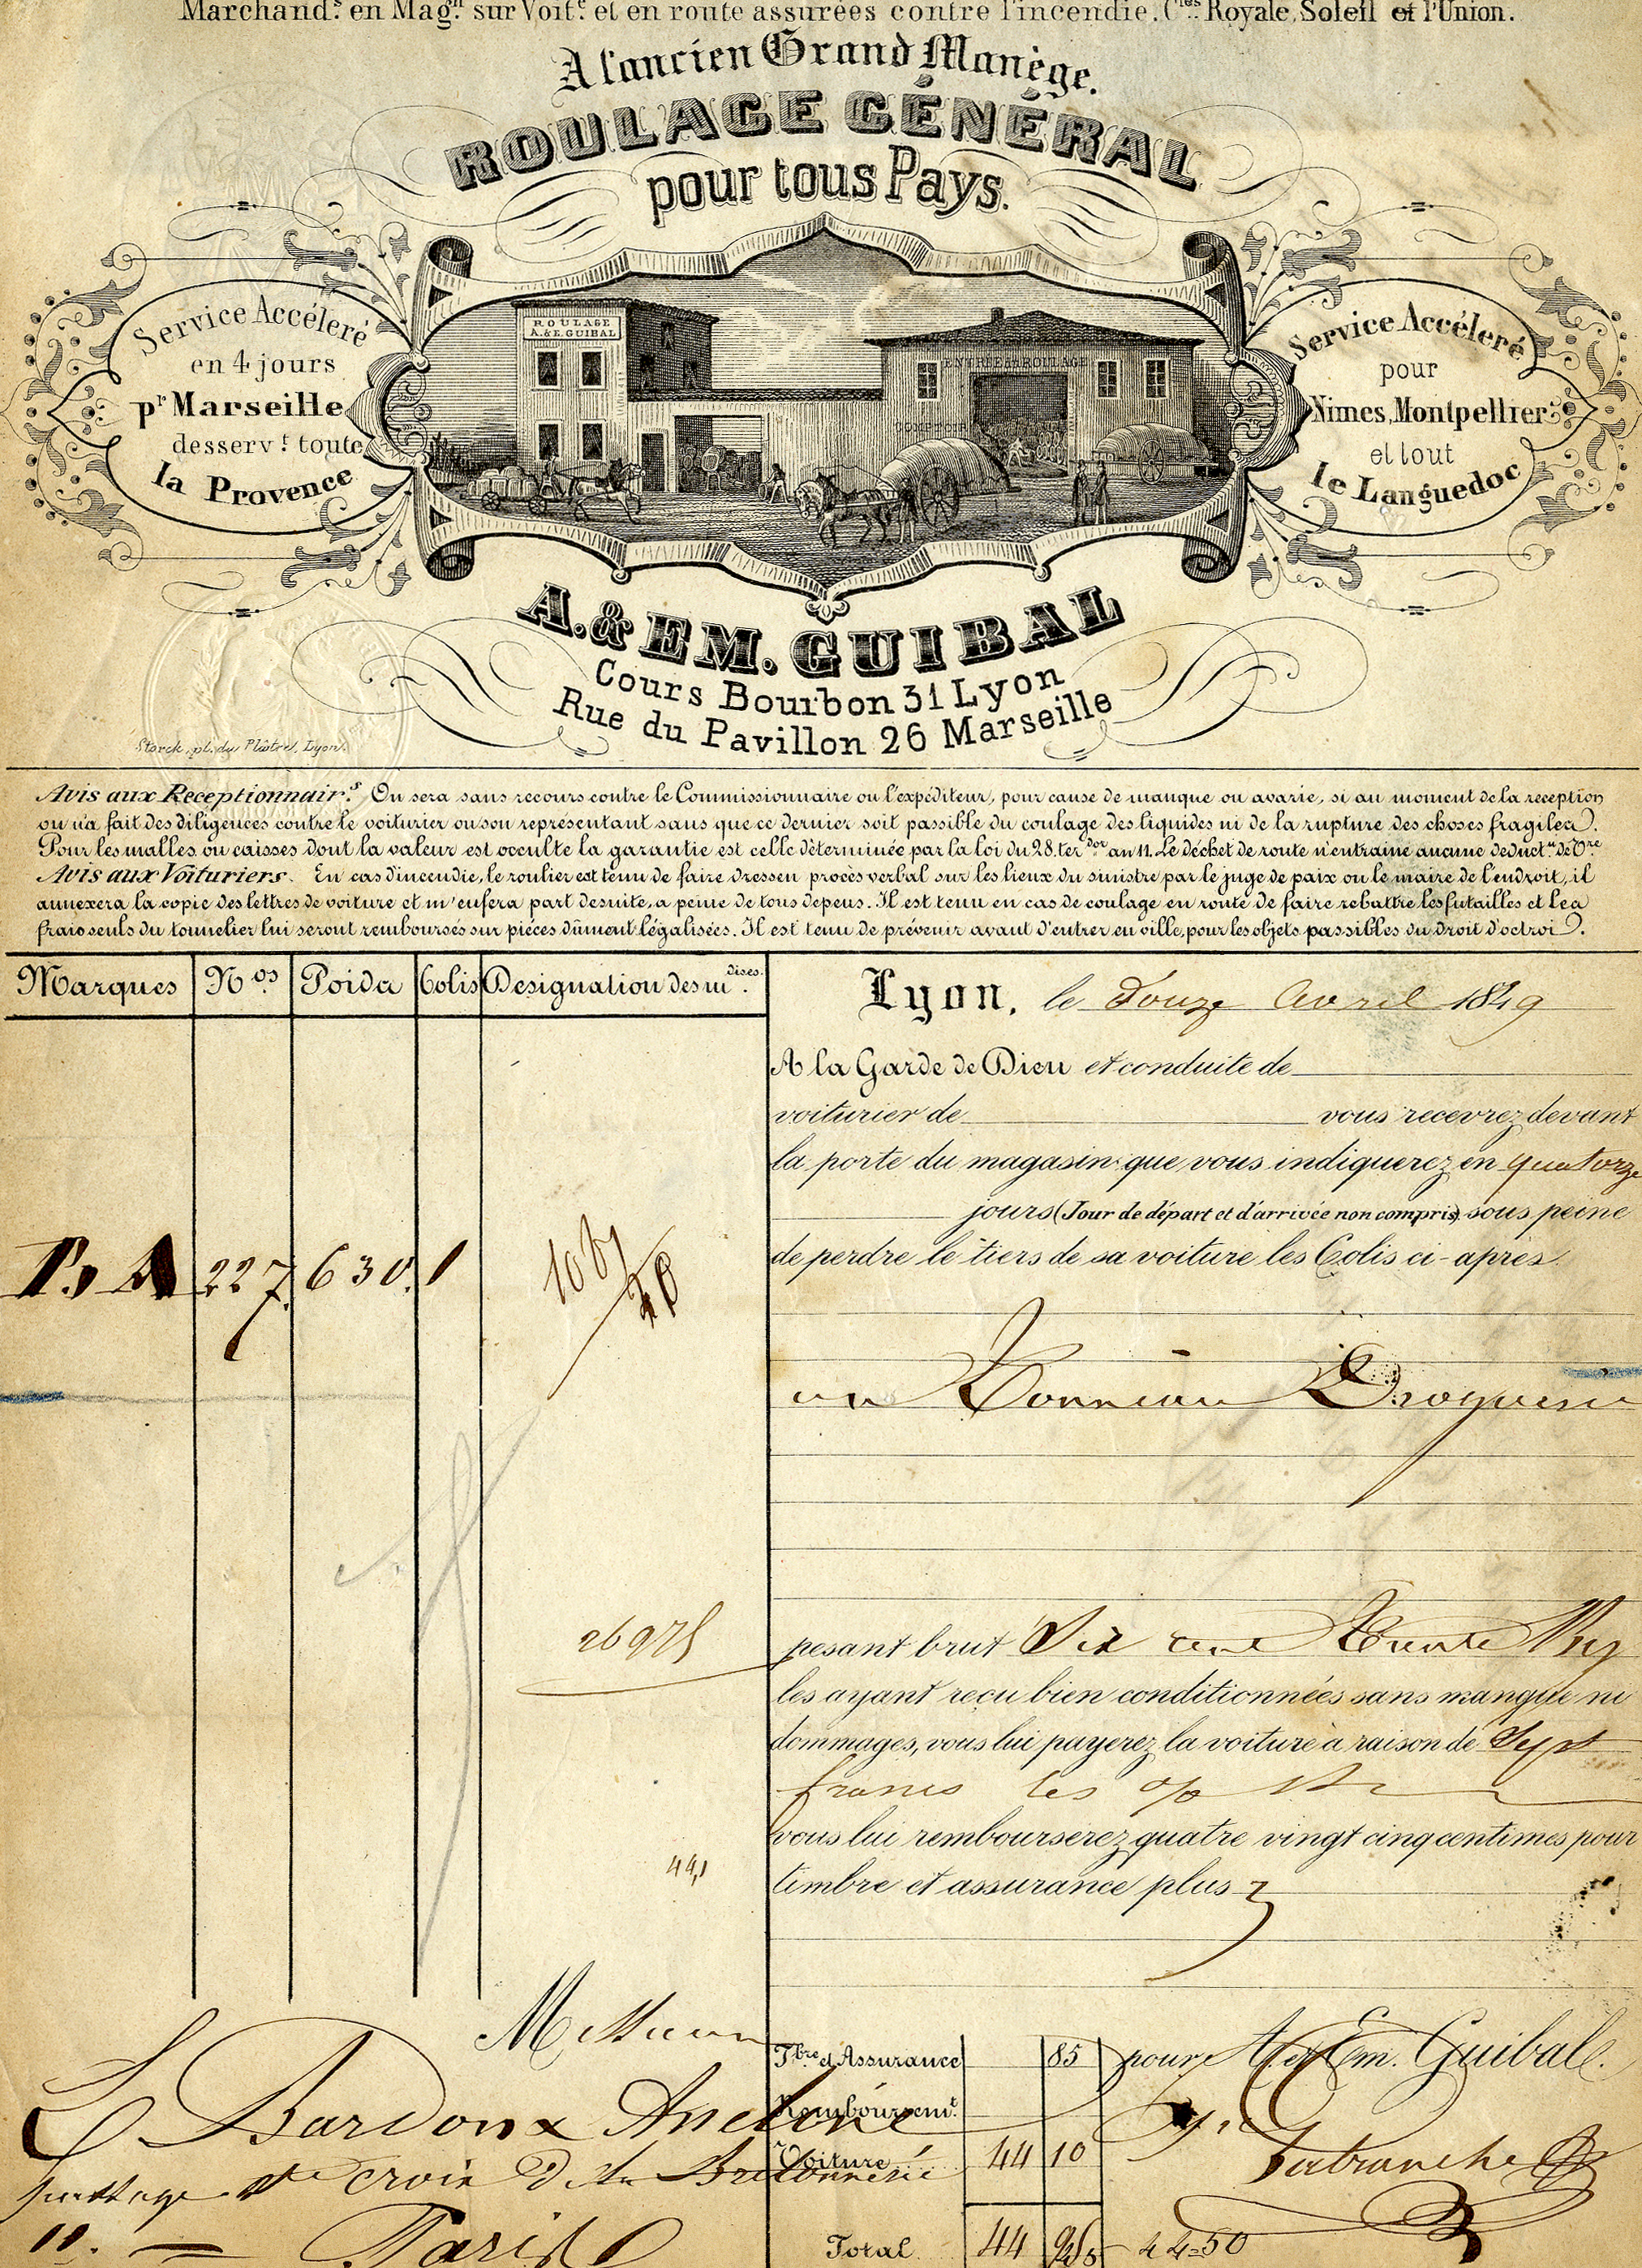 Marchand.s en Mag.n sur Voit.e et en route assurées contre l'incendie. C.ies Royale, Soleil et l'Union.
A l'ancien Grand Manège.
ROULAGE GÉNÉRAL
pour tous Pays.
Service Accéleré
en 4 jours
pr Marseille
desserv.t toute
la Provence
ROULAGE
A. & E. GUIBAL
ENTRÉE du ROULAGE
COMPTOIR
Service Accéleré
pour
Nimes, Montpellier
et tout
le Languedoc
A. & EM. GUIBAL
Cours Bourbon 31 Lyon
Rue du Pavillon 26 Marseille
Storck, pl. du Plâtre, Lyon.
Avis aux Réceptionnair.s On sera sans recours contre le Commissionnaire ou l'expéditeur, pour cause de manque ou avarie, si au moment de la réception
on n'a fait des diligences contre le voiturier ou son représentant sans que ce dernier soit passible du coulage des liquides ni de la rupture des choses fragiles.
Pour les malles ou caisses dont la valeur est occulte la garantie est celle déterminée par la loi du 28 ter dor an 11. Le déchet de route n'entraine aucune déduct.n de Vre
Avis aux Voituriers. En cas d'incendie, le roulier est tenu de faire dresser procès verbal sur les lieux du sinistre par le juge de paix ou le maire de l'endroit, il
annexera la copie des lettres de voiture et m'enfera part desuite, a peine de tous depens. Il est tenu en cas de coulage en route de faire rebattre les futailles et les
frais seuls du tonnelier lui seront remboursés sur pièces dûment légalisées. Il est tenu de prévenir avant d'entrer en ville, pour les objets passibles du droit d'octroi.
Marques Nos Poids Colis Designation des m.dises
Lyon, le Douze Avril 1849
A la Garde de Dieu et conduite de
voiturier de vous recevrez devant
la porte du magasin que vous indiquerez en quatorze
jours (Jour de départ et d'arrivée non compris) sous peine
de perdre le tiers de sa voiture les Colis ci-après.
P. A 227. 630. 1
un Tonneau Droguerie
26975
pesant brut Six cent Trente Kg
les ayant reçu bien conditionnées sans manque ni
dommages, vous lui payerez la voiture à raison de Sept
francs les % K
vous lui rembourserez quatre vingt cinq centimes pour
44,1
timbre et assurance plus
Messieurs
Tbre et Assurance 85
pour A. et Em. Guibal.
L Bardoux
Remboursem.t
Voiture 44 10
Latranche
passage Ste croix de la Bretonnerie
11. = Paris
Total 44 95
44-50